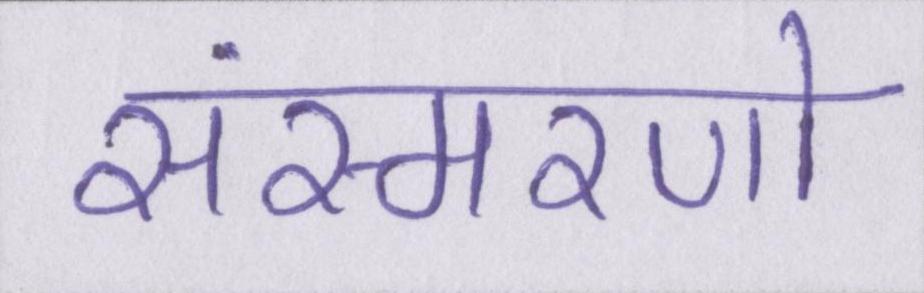 संस्मरणो